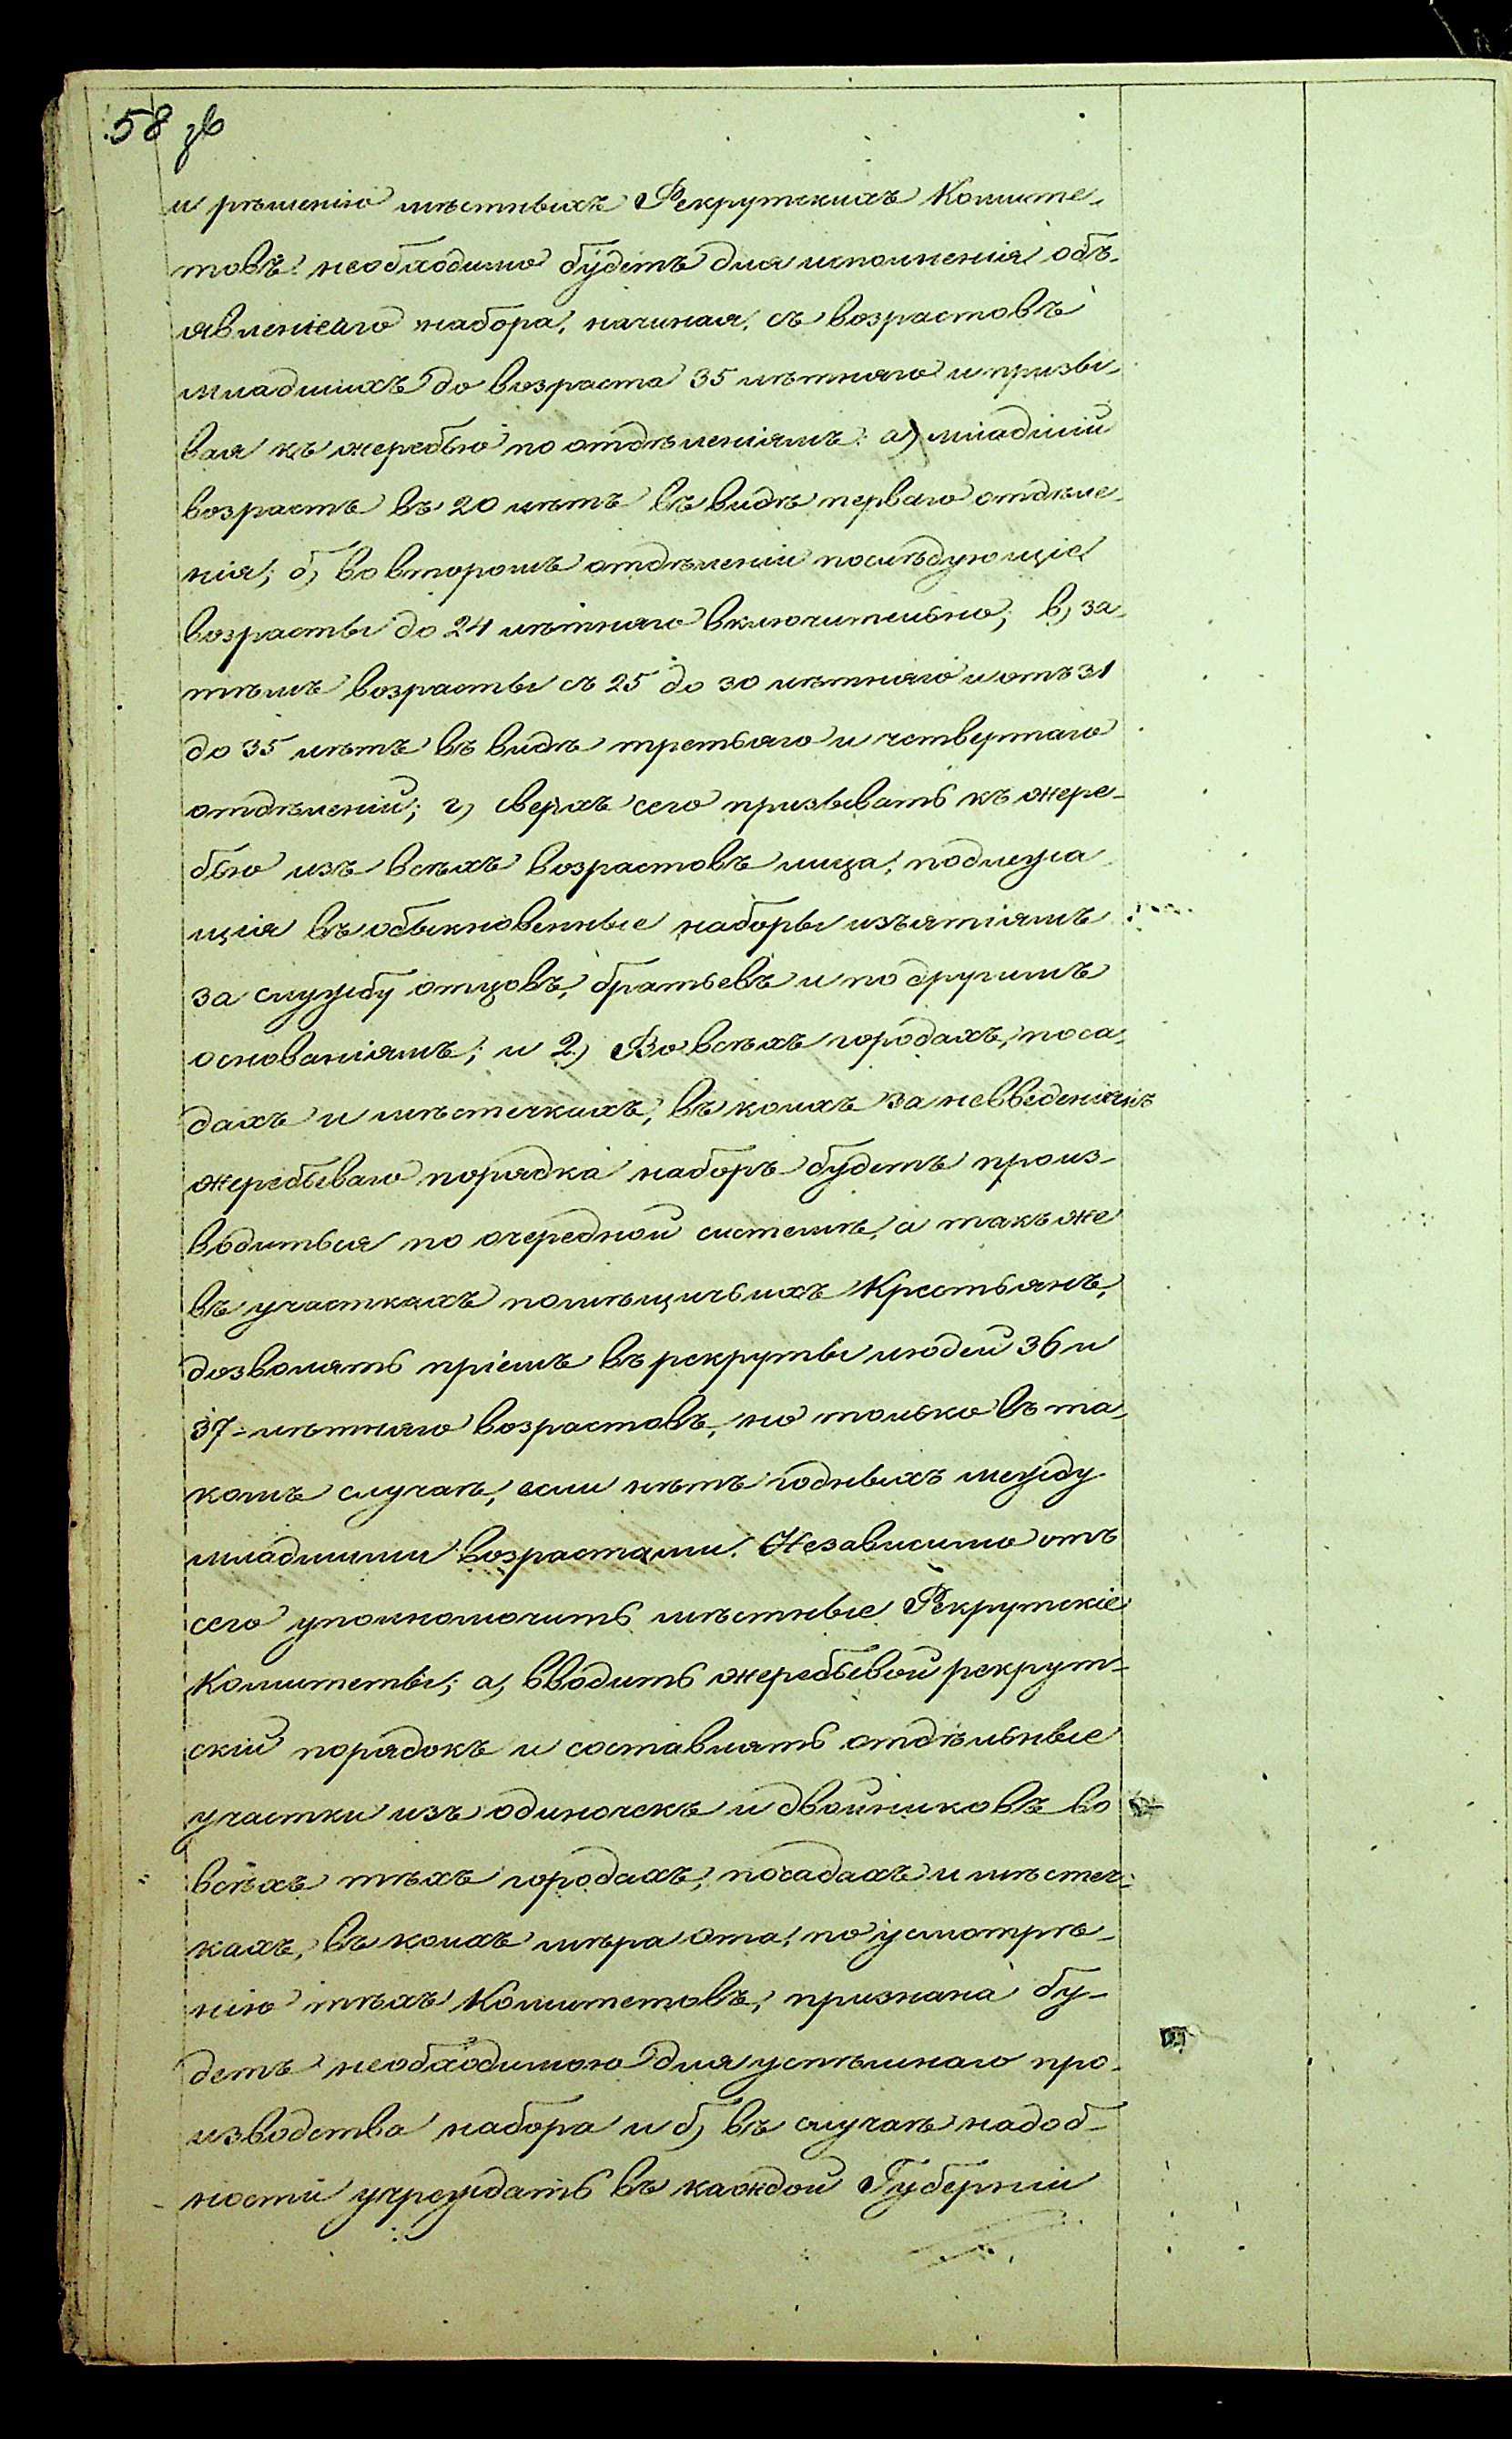 58 зв
и рѣшенію мѣстныхъ Рекрутскихъ Комите-
товъ необходимо будетъ для исполненія объ-
явленнаго набора, начиная, съ возрастовъ
младшихъ до возраста 35 лѣтняго и призы-
вая къ жеребью по отдѣленіямъ: а) младшій
возрастъ въ 20 лѣтъ въ видѣ перваго отдѣле-
нія; б) во второмъ отдѣленіи послѣдующіе
возрасты до 24 лѣтняго включительно; в) за-
тѣмъ возрасты съ 25 до 30 лѣтняго и отъ 31
до 35 лѣтъ въ видѣ третьяго и четвертаго
отдѣленій; г) сверхъ сего призывать къ жере-
бью изъ всѣхъ возрастовъ лица, подлежа-
щія въ обыкновенные наборы изъятіямъ
за службу отцовъ, братьевъ и по другимъ
основаніямъ; и 2) Во всѣхъ городахъ, поса-
дахъ и мѣстечкахъ, въ коихъ за невведеніемъ
жеребьеваго порядка наборъ будетъ произ-
водиться по очередной системѣ, а такъ же
въ участкахъ помѣщичьихъ Крестьянъ,
дозволять пріемъ въ рекруты людей 36 и
37-лѣтняго возрастовъ, но только въ та-
комъ случаѣ, если нѣтъ годныхъ между
младшими возрастами. Независимо отъ
сего уполномочить мѣстные Рекрутскіе
Комитеты; а) вводить жеребьевой рекрут-
скій порядокъ и составлять отдѣльные
участки изъ одиночекъ и двойниковъ во
всѣхъ тѣхъ городахъ, посадахъ и мѣстеч-
кахъ, въ коихъ мѣра эта, по усмотрѣ-
нію тѣхъ Комитетовъ, признана бу-
детъ необходимою для успѣшнаго про-
изводства набора и б) въ случаѣ надоб-
ности учреждать въ каждой Губерніи